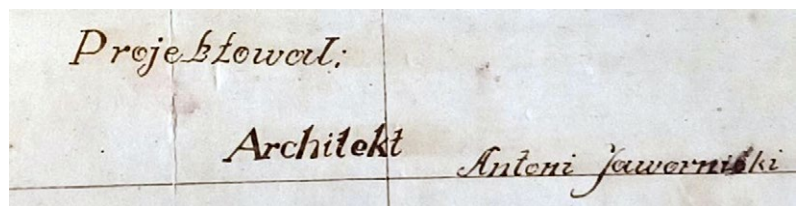 Projektował:
Architekt
Antoni Jawornicki